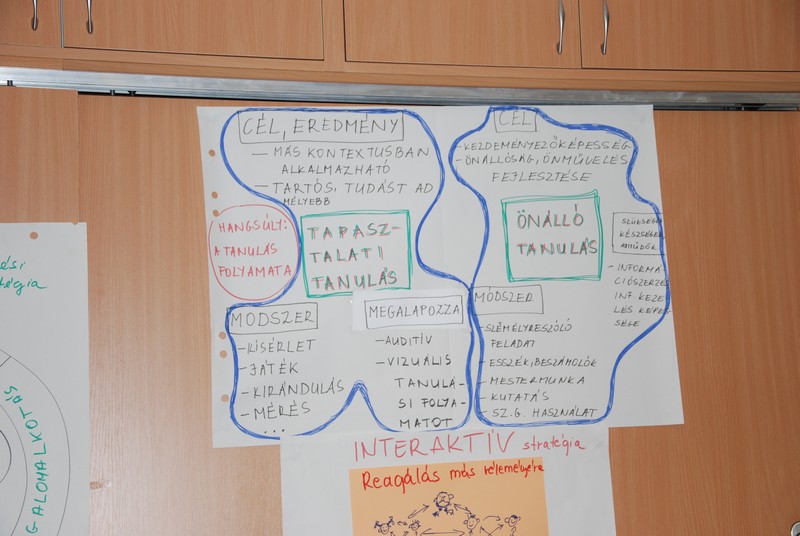 CÉL, EREDMÉNY
— MÁS KONTEXTUSBAN
ALKALMAZHATÓ
— TARTÓS, TUDÁST AD
MÉLYEBB
HANGSÚLY:
A TANULÁS
FOLYAMATA
TAPASZ-
TALATI
TANULÁS
MÓDSZER
— KÍSÉRLET
— JÁTÉK
— KIRÁNDULÁS
— MÉRÉS
...
MEGALAPOZZA
— AUDITÍV
— VIZUÁLIS
TANULÁ-
SI FOLYA-
MATOT
CÉL
— KEZDEMÉNYEZŐKÉPESSÉG
— ÖNÁLLÓSÁG, ÖNMŰVELÉS
FEJLESZTÉSE
ÖNÁLLÓ
TANULÁS
KÉSZSÉGEK
— INFORMÁ-
CIÓSZERZÉS
INF. KEZE-
LÉS KÉPES-
SÉGE
MÓDSZER
— SZEMÉLYRESZÓLÓ
FELADAT
— ESSZÉK, BESZÁMOLÓK
— MESTERMUNKA
— KUTATÁS
— SZ.G. HASZNÁLAT
INTERAKTÍV stratégia
Reagálás más véleményére
ési
tégia
GALOMALKOTÁS